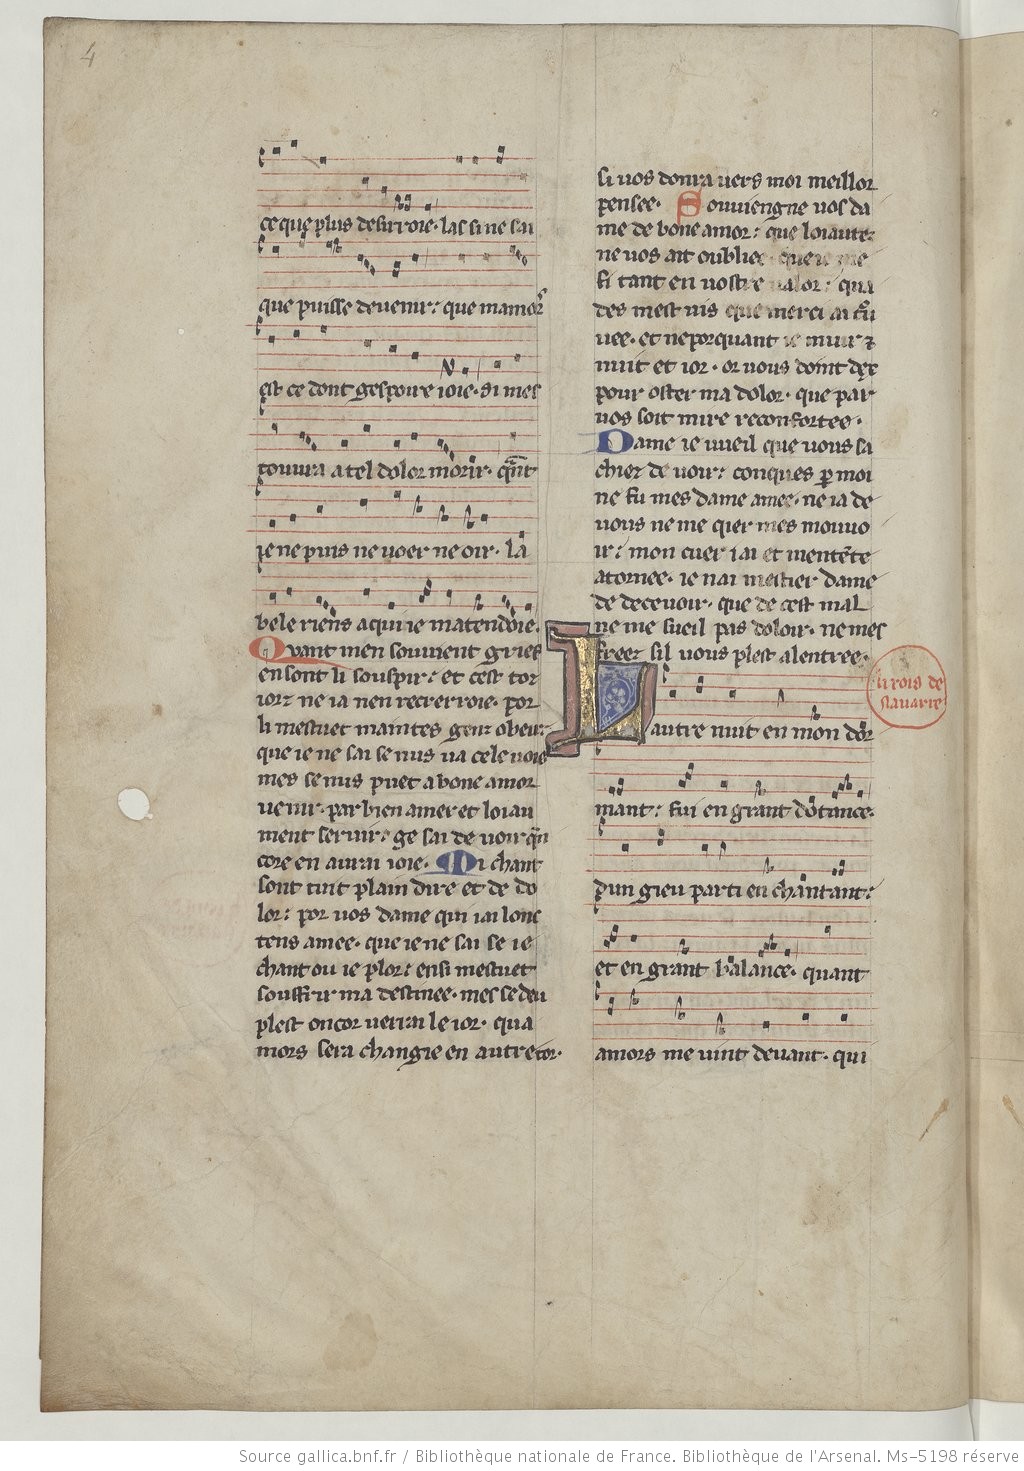 4
ce que plus desirroie· las si ne sai
que puisse devenir: que mamort
est ce dont gespoire ioie· Si mes
touvra a tel dolor morir· quant
ie ne puis ne veer ne oir· La
bele riens a qui ie matendoie·
Quant men souvient grief
en sont li souspir: et cest tor
iorz ne ia nen recrerroie· por
li mestuet maintes genz obeir:
que ie ne sai se nus va cele voie
mes se nus puet a bone amor
venir· par bien amer et loiau
ment servir· ge sai de voir qun
core en avrai ioie· Mi chant
sont tuit plain dire et de do
lor: por vos dame qui iai lonc
tens amee· que ie ne sai se ie
chant ou ie plor: ensi mestuet
souffrir ma destinee· mes se deu
plest oncor verrai le ior· qua
mors sera changie en autre tor·
si vos donra vers moi meillor
pensee· Souviengne vos da
me de bone amor: que loiaute
ne vos ait oubliee· que ie me
fi tant en vostre valor: qua
des mest vis que merci ai trou
vee· et neporquant ie muir ⁊
nuit et ior· or vous doint dex
pour oster ma dolor· que par
vos soit mire reconfortee·
Dame ie vueil que vous sa
chiez de voir: conques par moi
ne fu mes dame amee· ne ia de
vous ne me qier mes mouvo
ir: mon cuer i ai et mentente
atornee· ie nai mestier dame
de decevoir· que de cest mal
ne me sueil pas doloir· ne mes
freez sil vous plest a lentree·
li rois de
navarre
Lautre nuit en mon dor
mant: fui en grant doutance·
dun gieu parti en chantant:
et en grant balance· quant
amors me vint devant· qui
Source gallica.bnf.fr / Bibliothèque nationale de France. Bibliothèque de l'Arsenal. Ms-5198 réserve